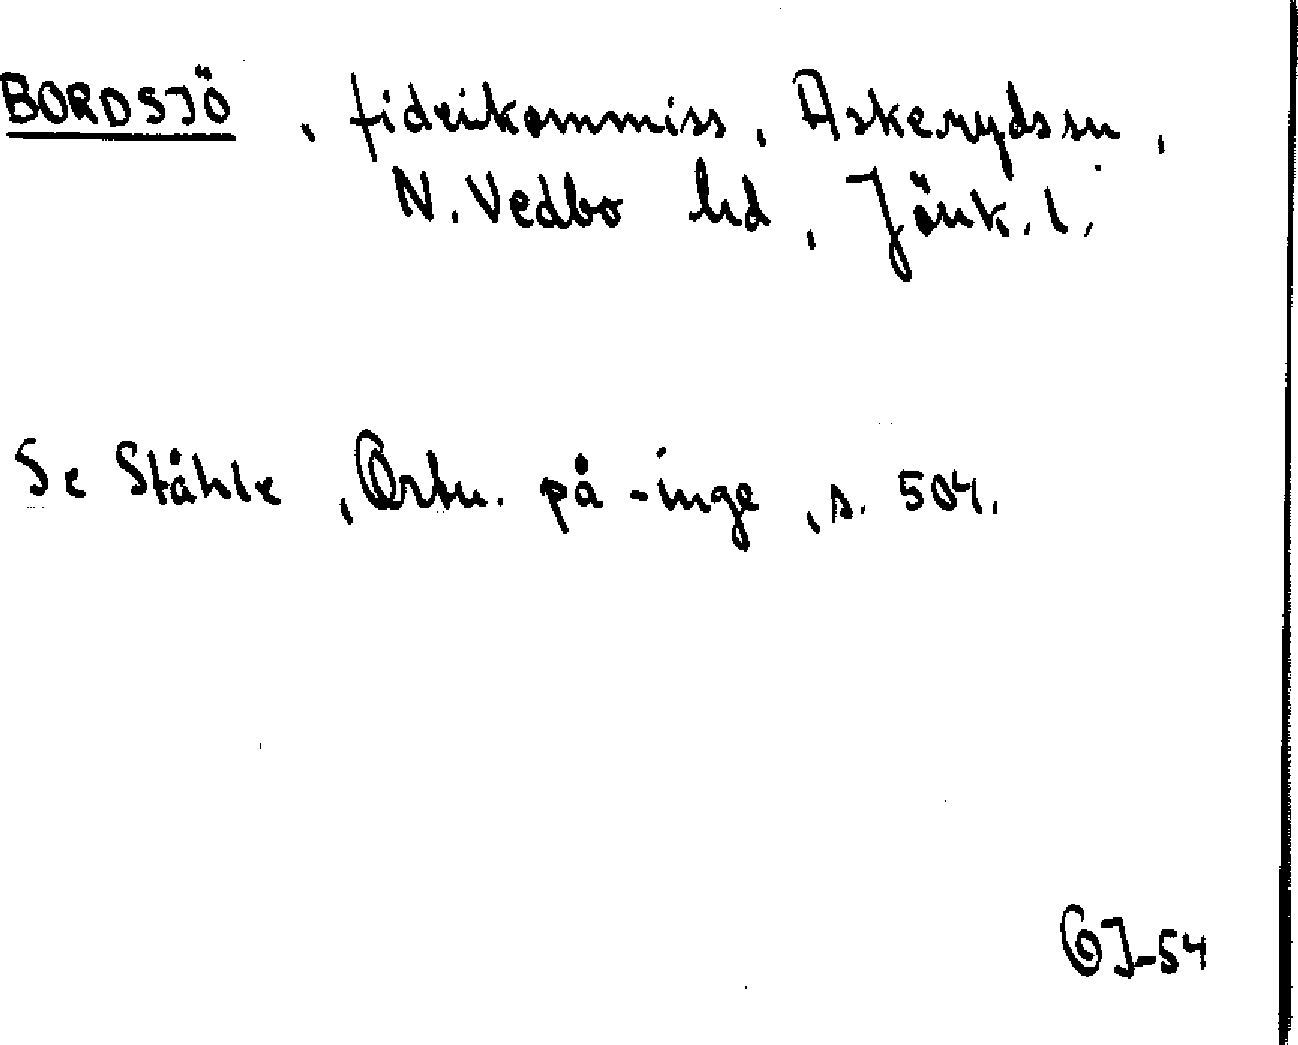 BORDSJÖ, fideikommiss, Askerydssn,
N. Vedbo hd, Jönk. l.
Se Ståhle, Ortn. på -inge, s. 504.
GJ-54